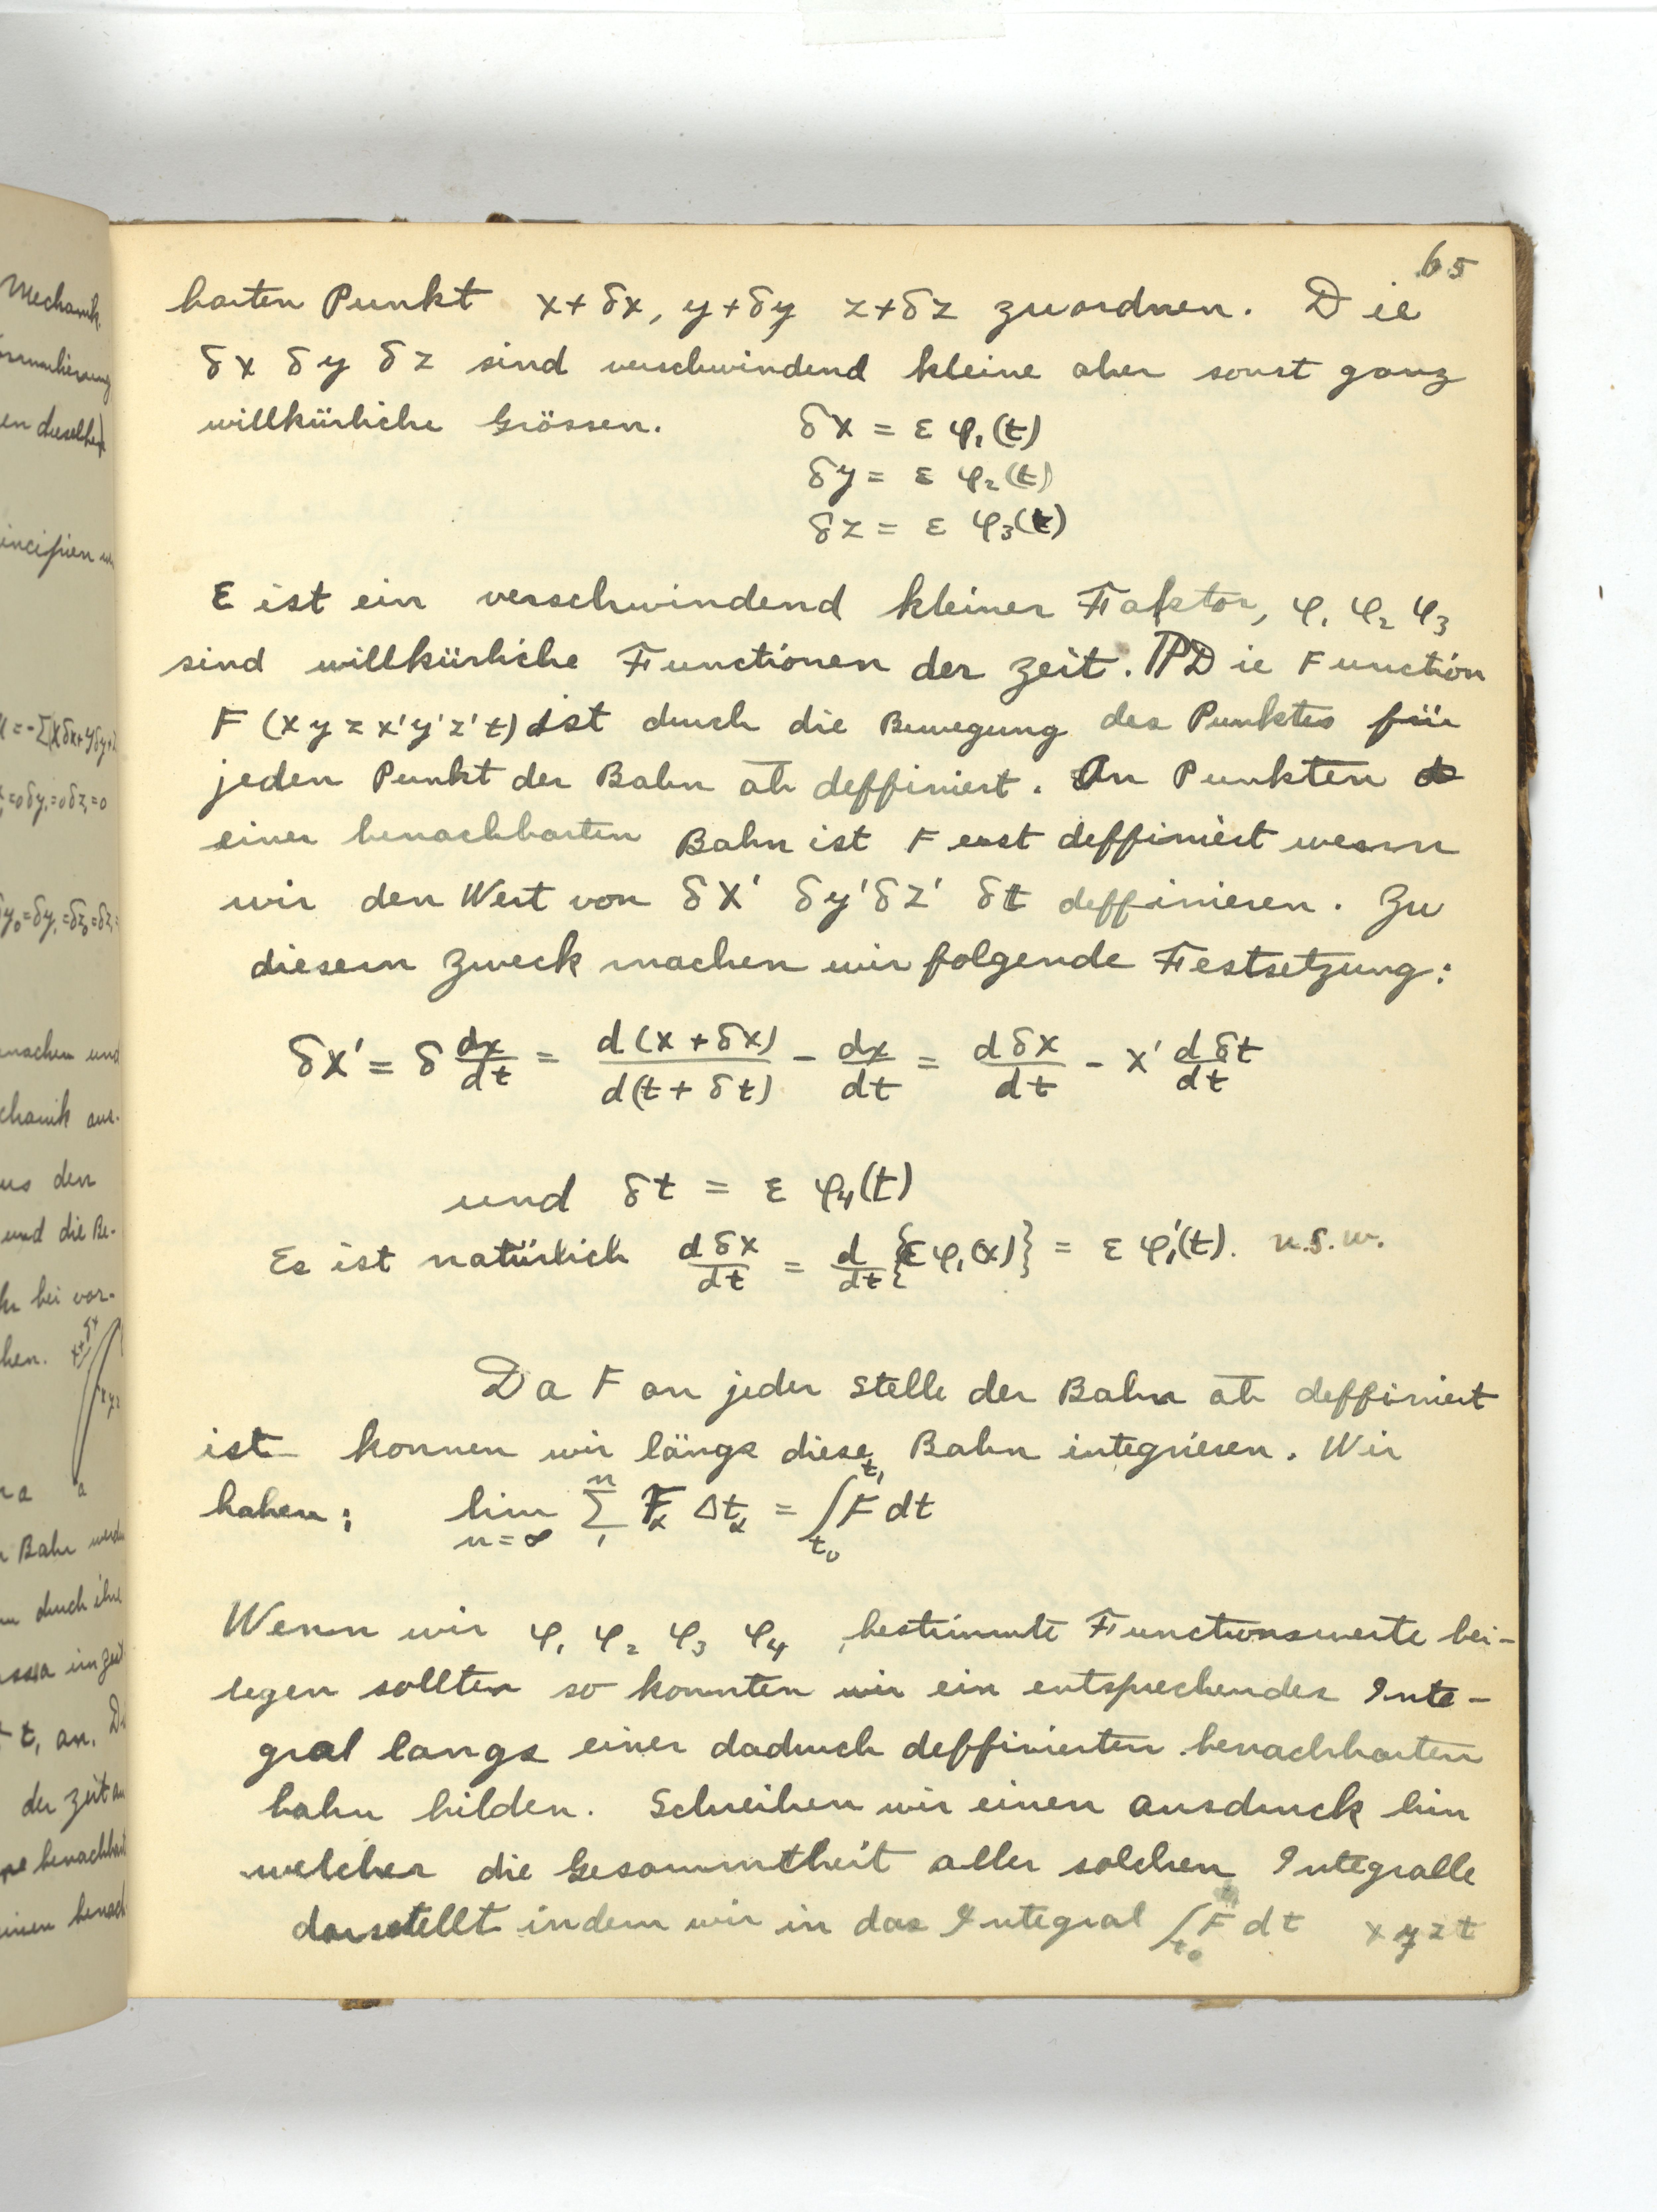 65
barten Punkt x+δx, y+δy z+δz zuordnen. Die
δx δy δz sind verschwindend kleine aber sonst ganz
willkürliche Grössen. δx = ε φ₁(t)
δy = ε φ₂(t)
δz = ε φ₃(t)
ε ist ein verschwindend kleiner Faktor, φ₁ φ₂ φ₃
sind willkürliche Functionen der Zeit. Die Function
F (x y z x' y' z' t) ist durch die Bewegung des Punktes für
jeden Punkt der Bahn ab deffiniert. An Punkten
einer benachbarten Bahn ist F erst deffiniert wenn
wir den Wert von δx' δy' δz' δt deffinieren. Zu
diesem Zweck machen wir folgende Festsetzung:
δx' = δ dx/dt = d(x + δx)/d(t + δt) - dx/dt = dδx/dt - x' dδt/dt
und δt = ε φ₄(t)
Es ist natürlich dδx/dt = d/dt {ε φ₁(x)} = ε φ₁'(t). u.s.w.
Da F an jeder Stelle der Bahn ab deffiniert
ist konnen wir längs diese Bahn integrieren. Wir
haben: lim n=∞ Σ₁ⁿ Fα Δtα = ∫ₜ₀ᵗ¹ F dt
Wenn wir φ₁ φ₂ φ₃ φ₄ bestimmte Functionswerte bei-
legen sollten so konnten wir ein entsprechendes Inte-
gral langs einer dadurch deffinierten benachbarten
bahn bilden. Schreiben wir einen ausdruck hin
welcher die Gesammtheit aller solchen Integralle
darstellt indem wir in das Integral ∫ₜ₀ F dt x y z t